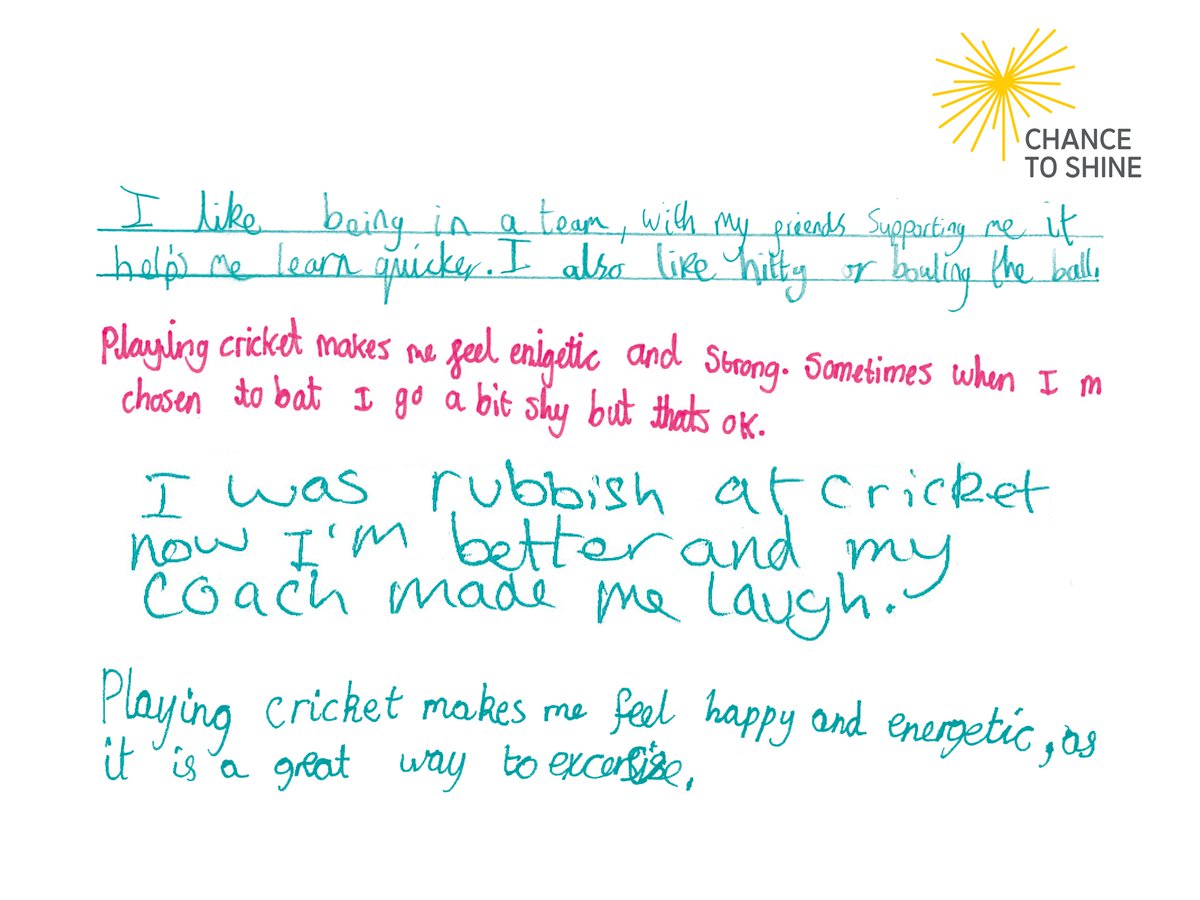 CHANCE
TO SHINE
I like being in a team, with my friends Supporting me it
help's me learn quicker. I also like hitty or bowling the ball.
Playing cricket makes me feel enigetic and Strong. Sometimes when I m
chosen to bat I go a bit shy but thats ok.
I was rubbish at cricket
now I'm better and my
coach made me laugh.
Playing cricket makes me feel happy and energetic, as
it is a great way to excersise.